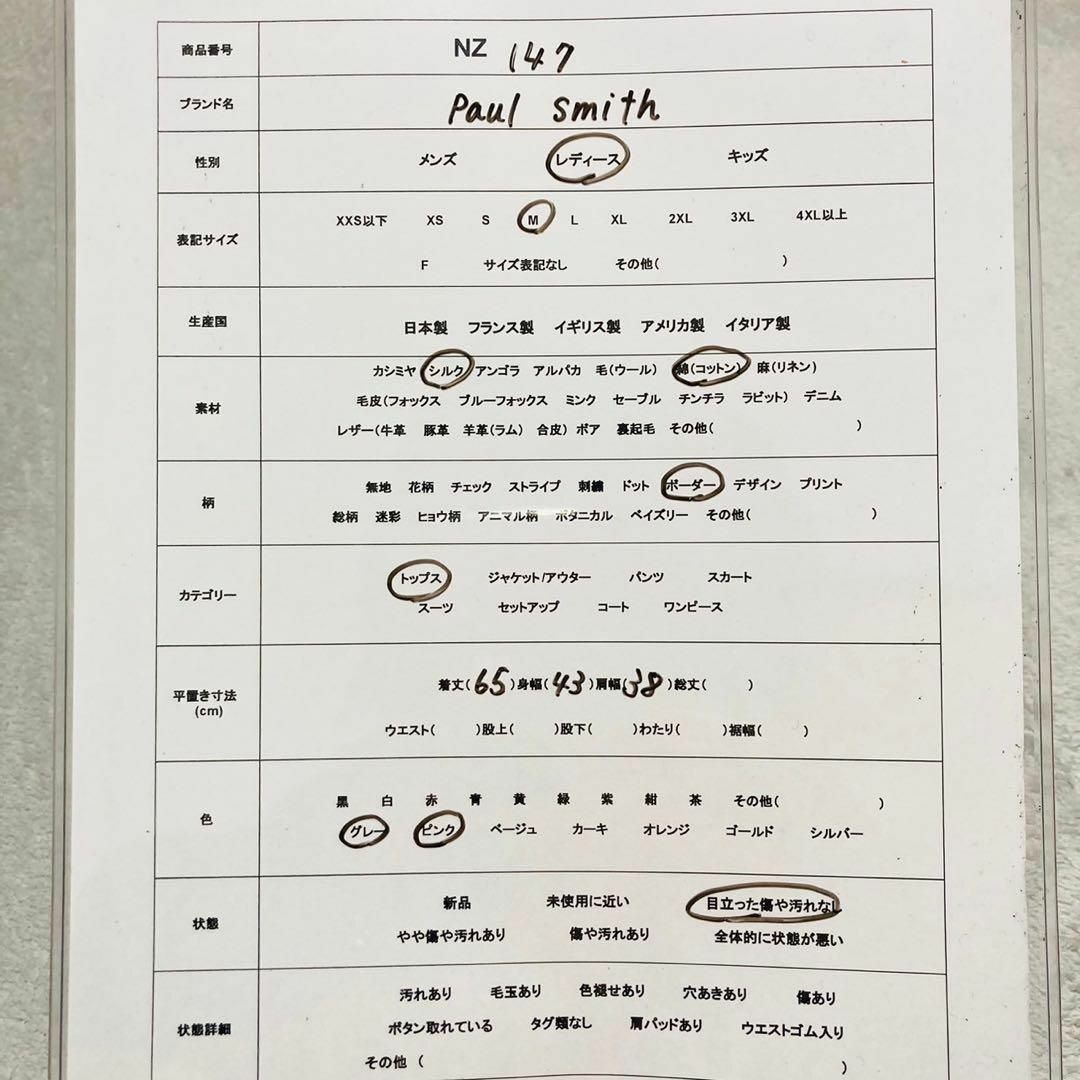 商品番号 NZ 147
ブランド名 Paul Smith
性別 メンズ レディース キッズ
表記サイズ XXS以下 XS S M L XL 2XL 3XL 4XL以上
F サイズ表記なし その他( )
生産国 日本製 フランス製 イギリス製 アメリカ製 イタリア製
カシミヤ シルク アンゴラ アルパカ 毛(ウール) 綿(コットン) 麻(リネン)
素材 毛皮(フォックス ブルーフォックス ミンク セーブル チンチラ ラビット) デニム
レザー(牛革 豚革 羊革(ラム) 合皮) ボア 裏起毛 その他( )
柄 無地 花柄 チェック ストライプ 刺繍 ドット ボーダー デザイン プリント
総柄 迷彩 ヒョウ柄 アニマル柄 ボタニカル ペイズリー その他( )
カテゴリー トップス ジャケット/アウター パンツ スカート
スーツ セットアップ コート ワンピース
平置き寸法 (cm) 着丈(65)身幅(43)肩幅(38)総丈( )
ウエスト( )股上( )股下( )わたり( )裾幅( )
色 黒 白 赤 青 黄 緑 紫 紺 茶 その他( )
グレー ピンク ベージュ カーキ オレンジ ゴールド シルバー
状態 新品 未使用に近い 目立った傷や汚れなし
やや傷や汚れあり 傷や汚れあり 全体的に状態が悪い
状態詳細 汚れあり 毛玉あり 色褪せあり 穴あきあり 傷あり
ボタン取れている タグ類なし 肩パッドあり ウエストゴム入り
その他 ( )